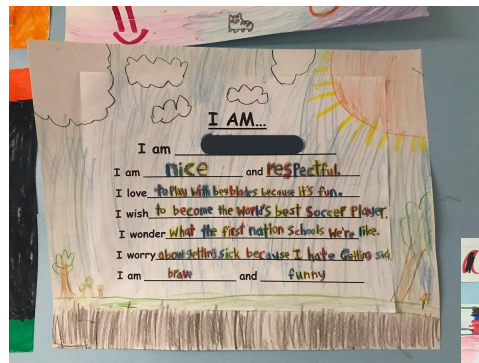 I AM...
I am
I am nice and respectful.
I love to play with beyblades because it's fun.
I wish to become the World's best Soccer Player.
I wonder what the first nation Schools We're like.
I worry about getting sick because I hate Getting sick
I am brave and funny